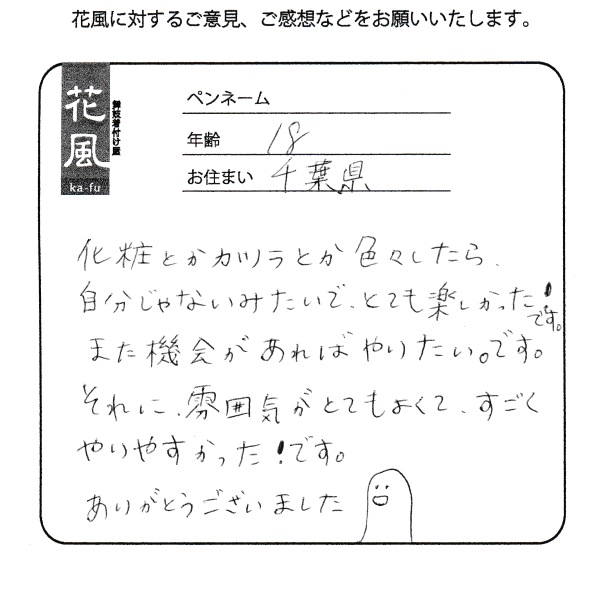 花風に対するご意見、ご感想などをお願いいたします。
花風
舞妓着付け屋
ka-fu
ペンネーム
年齢 18
お住まい 千葉県
化粧とかカツラとか色々したら、
自分じゃないみたいで、とても楽しかった!
です。
また機会があればやりたい。です。
それに、雰囲気がとてもよくて、すごく
やりやすかった!です。
ありがとうございました